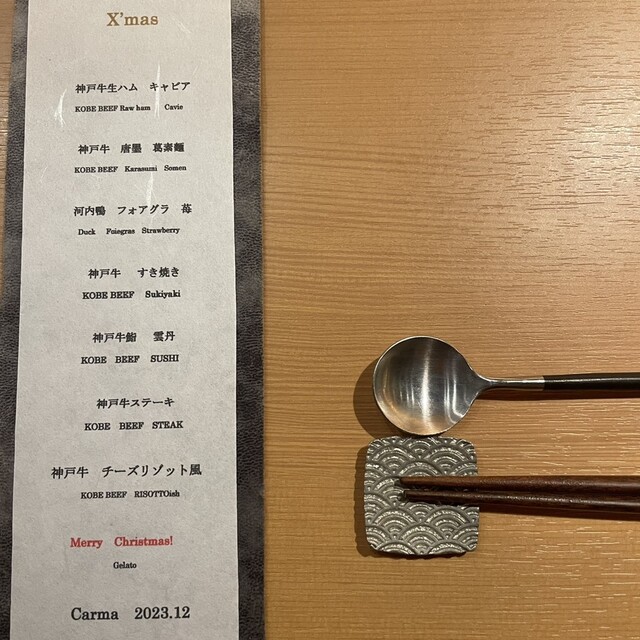 X'mas
神戸牛生ハム キャビア
KOBE BEEF Raw ham Cavie
神戸牛 唐墨 葛素麺
KOBE BEEF Karasumi Somen
河内鴨 フォアグラ 苺
Duck Foiegras Strawberry
神戸牛 すき焼き
KOBE BEEF Sukiyaki
神戸牛鮨 雲丹
KOBE BEEF SUSHI
神戸牛ステーキ
KOBE BEEF STEAK
神戸牛 チーズリゾット風
KOBE BEEF RISOTTOish
Merry Christmas!
Gelato
Carma 2023.12